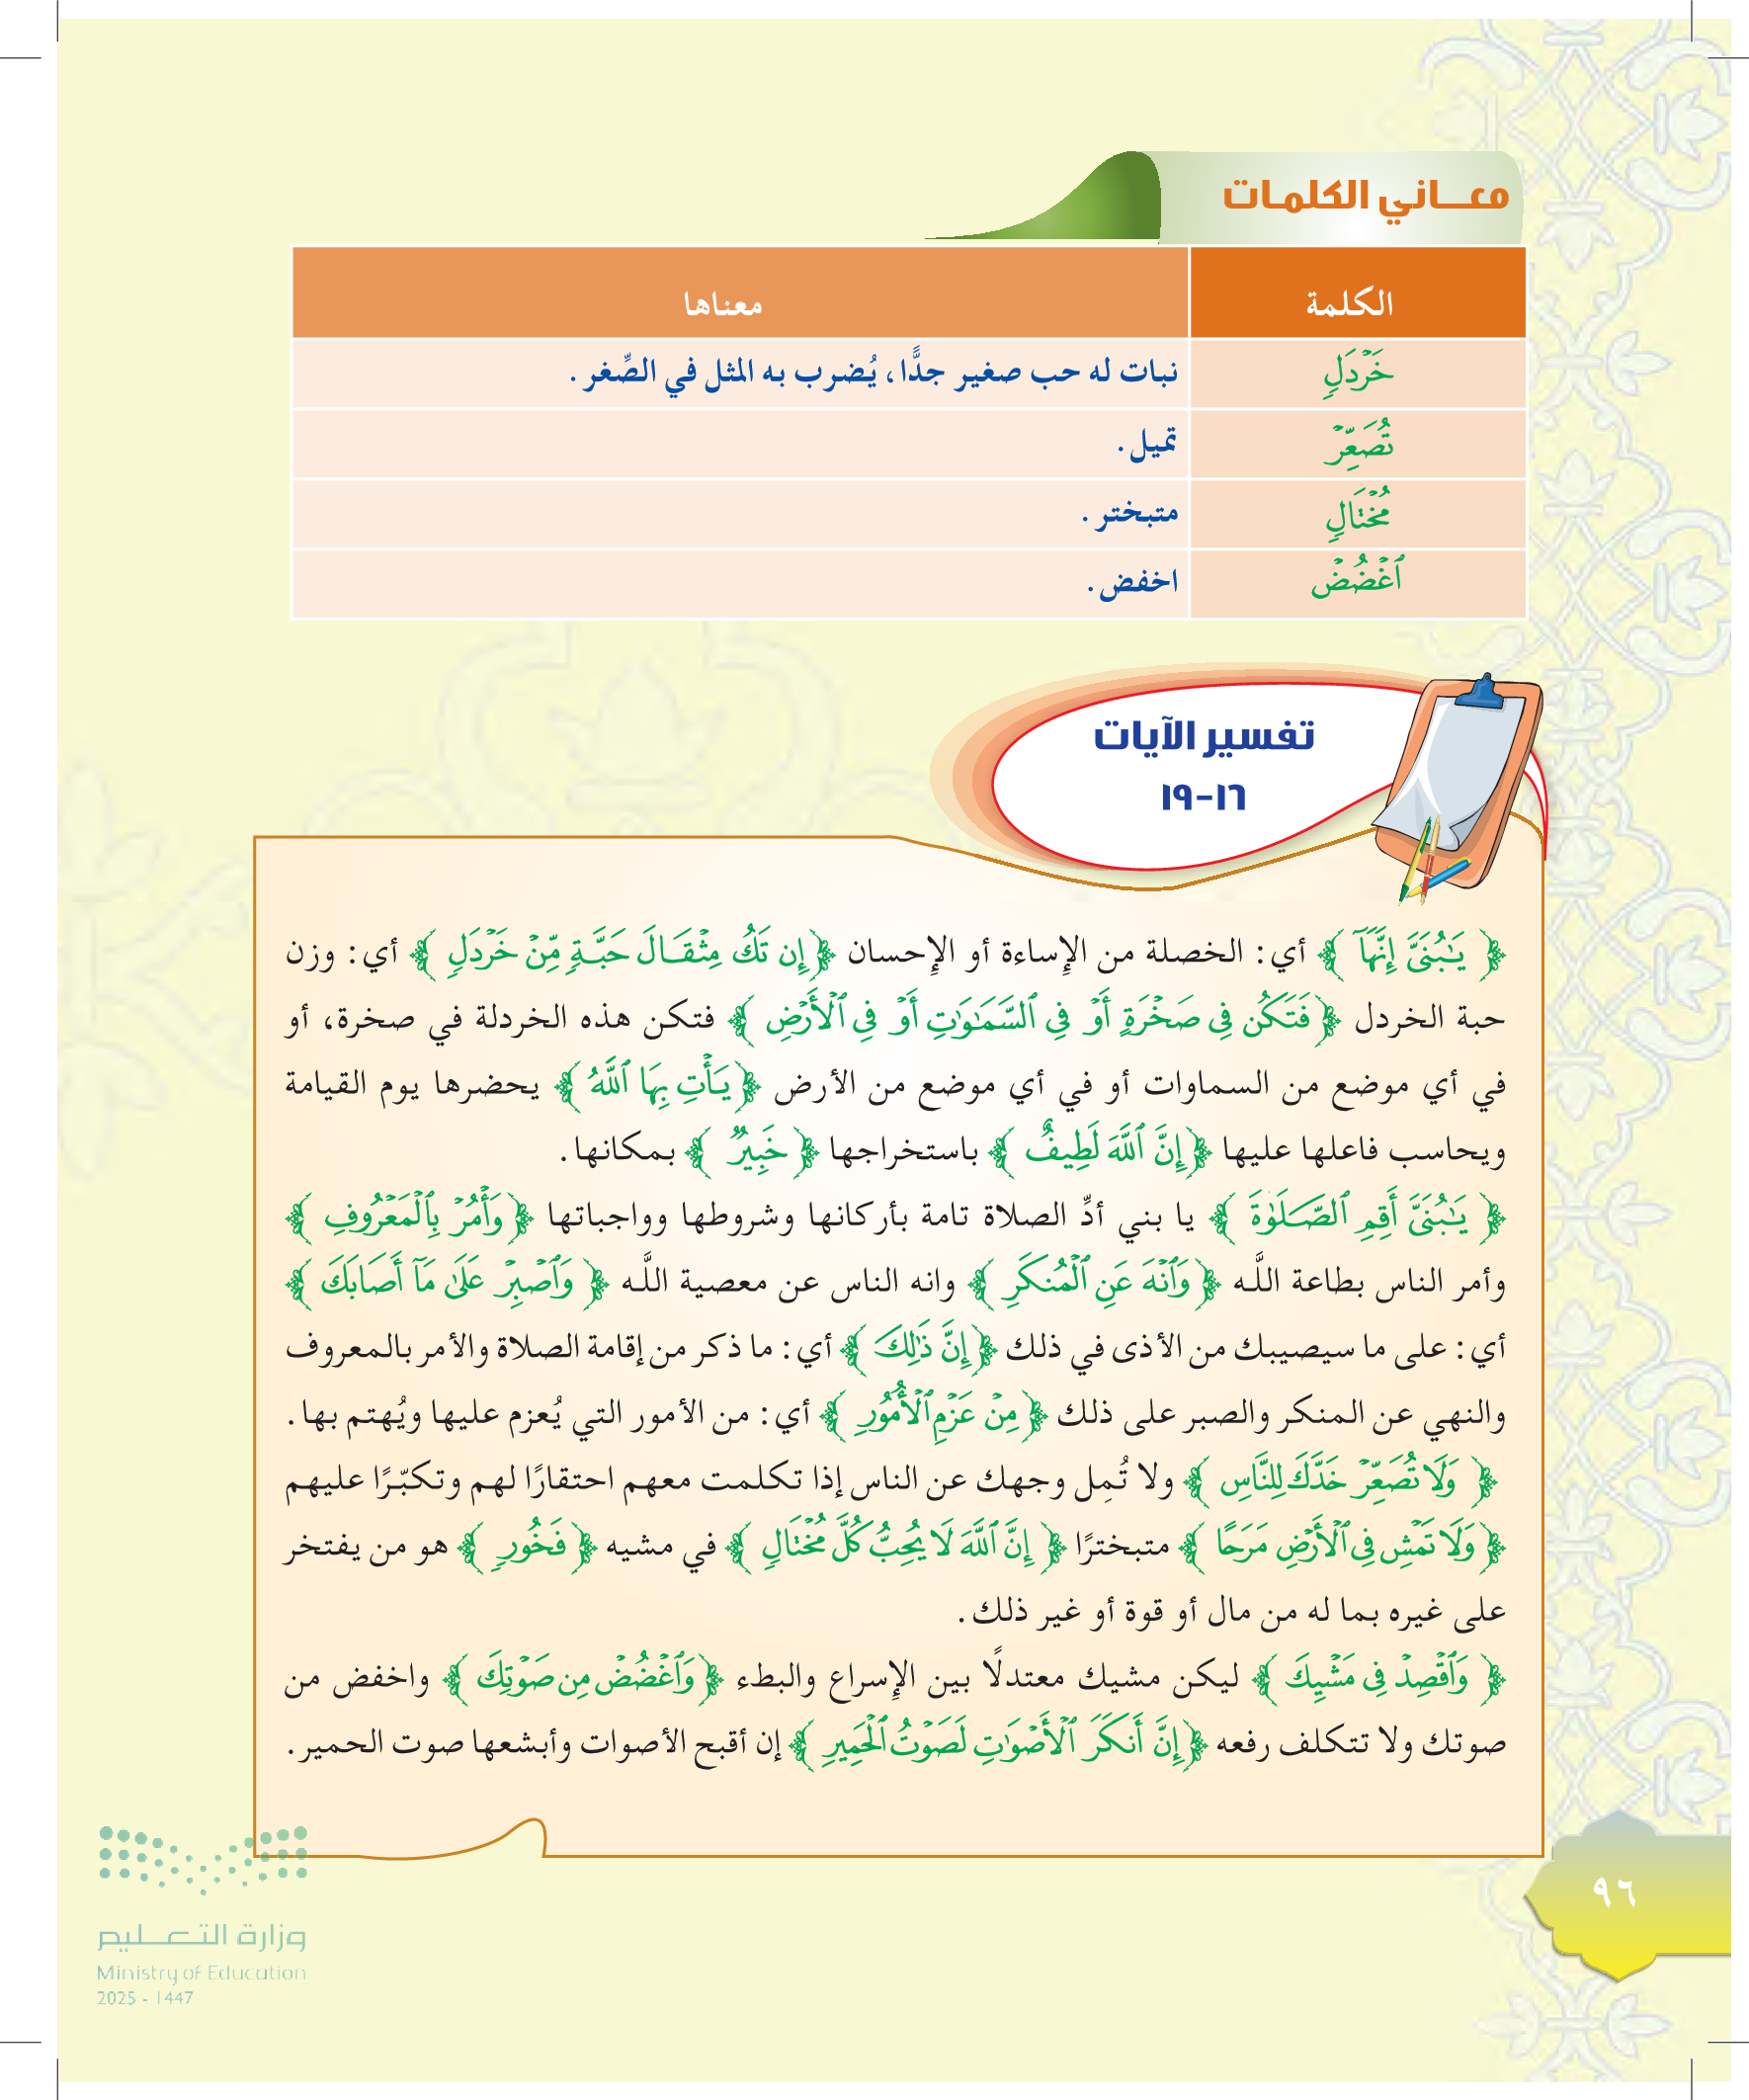 معـــاني الكلمـات
الكلمة معناها
خَرۡدَلٖ نبات له حب صغير جدًّا، يُضرب به المثل في الصِّغر.
تُصَعِّرۡ تميل.
مُخۡتَالٖ متبختر.
ٱغۡضُضۡ اخفض.
تفسير الآيات
١٦-١٩
﴿ يَٰبُنَيَّ إِنَّهَآ ﴾ أي: الخصلة من الإساءة أو الإحسان ﴿إِن تَكُ مِثۡقَالَ حَبَّةٖ مِّنۡ خَرۡدَلٖ ﴾ أي: وزن
حبة الخردل ﴿ فَتَكُن فِي صَخۡرَةٍ أَوۡ فِي ٱلسَّمَٰوَٰتِ أَوۡ فِي ٱلۡأَرۡضِ ﴾ فتكن هذه الخردلة في صخرة، أو
في أي موضع من السماوات أو في أي موضع من الأرض ﴿ يَأۡتِ بِهَا ٱللَّهُ ﴾ يحضرها يوم القيامة
ويحاسب فاعلها عليها ﴿إِنَّ ٱللَّهَ لَطِيفٌ ﴾ باستخراجها ﴿ خَبِيرٞ ﴾ بمكانها.
﴿ يَٰبُنَيَّ أَقِمِ ٱلصَّلَوٰةَ ﴾ يا بني أدِّ الصلاة تامة بأركانها وشروطها وواجباتها ﴿ وَأۡمُرۡ بِٱلۡمَعۡرُوفِ ﴾
وأمر الناس بطاعة اللَّـه ﴿ وَٱنۡهَ عَنِ ٱلۡمُنكَرِ ﴾ وانه الناس عن معصية اللَّـه ﴿ وَٱصۡبِرۡ عَلَىٰ مَآ أَصَابَكَ ﴾
أي: على ما سيصيبك من الأذى في ذلك ﴿ إِنَّ ذَٰلِكَ ﴾ أي: ما ذكر من إقامة الصلاة والأمر بالمعروف
والنهي عن المنكر والصبر على ذلك ﴿ مِنۡ عَزۡمِ ٱلۡأُمُورِ ﴾ أي: من الأمور التي يُعزم عليها ويُهتم بها.
﴿ وَلَا تُصَعِّرۡ خَدَّكَ لِلنَّاسِ ﴾ ولا تُمِل وجهك عن الناس إذا تكلمت معهم احتقارًا لهم وتكبّرًا عليهم
﴿ وَلَا تَمۡشِ فِي ٱلۡأَرۡضِ مَرَحًا ﴾ متبخترًا ﴿ إِنَّ ٱللَّهَ لَا يُحِبُّ كُلَّ مُخۡتَالٖ ﴾ في مشيه ﴿ فَخُورٖ ﴾ هو من يفتخر
على غيره بما له من مال أو قوة أو غير ذلك.
﴿ وَٱقۡصِدۡ فِي مَشۡيِكَ ﴾ ليكن مشيك معتدلًا بين الإسراع والبطء ﴿ وَٱغۡضُضۡ مِن صَوۡتِكَ ﴾ واخفض من
صوتك ولا تتكلف رفعه ﴿إِنَّ أَنكَرَ ٱلۡأَصۡوَٰتِ لَصَوۡتُ ٱلۡحَمِيرِ ﴾ إن أقبح الأصوات وأبشعها صوت الحمير.
٩٦
وزارة التـعـــليم
Ministry of Education
2025 - 1447